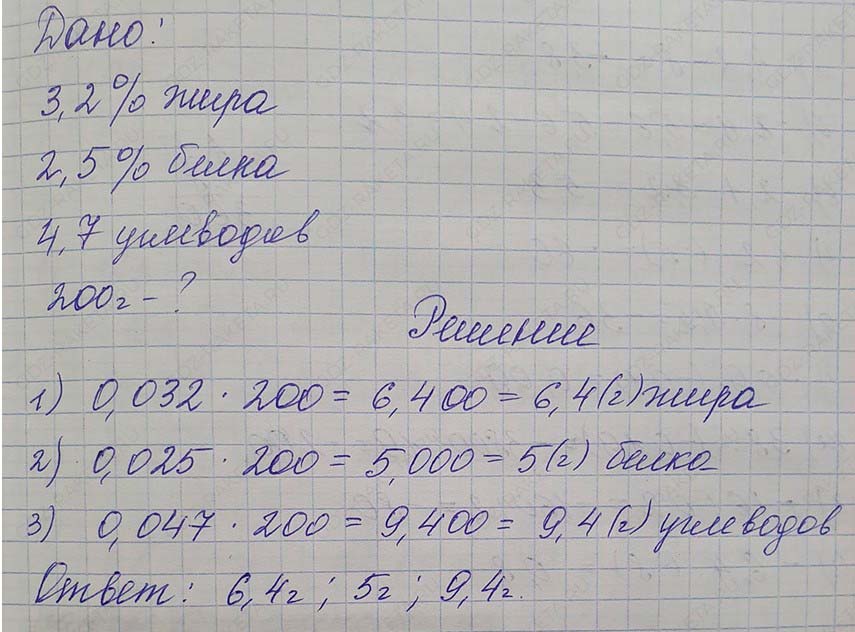 Дано:
3,2% жира
2,5% белка
4,7 углеводов
200г - ?
Решение
1) 0,032 · 200 = 6,400 = 6,4 (г) жира
2) 0,025 · 200 = 5,000 = 5 (г) белка
3) 0,047 · 200 = 9,400 = 9,4 (г) углеводов
Ответ: 6,4г ; 5г ; 9,4г.